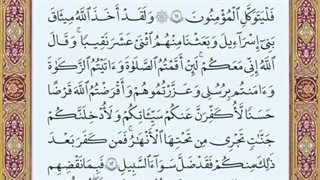 فَلْيَتَوَكَّلِ ٱلْمُؤْمِنُونَ ١١ ۞ وَلَقَدْ أَخَذَ ٱللَّهُ مِيثَٰقَ
بَنِىٓ إِسْرَٰٓءِيلَ وَبَعَثْنَا مِنْهُمُ ٱثْنَىْ عَشَرَ نَقِيبًا ۖ وَقَالَ
ٱللَّهُ إِنِّى مَعَكُمْ ۖ لَئِنْ أَقَمْتُمُ ٱلصَّلَوٰةَ وَءَاتَيْتُمُ ٱلزَّكَوٰةَ
وَءَامَنتُم بِرُسُلِى وَعَزَّرْتُمُوهُمْ وَأَقْرَضْتُمُ ٱللَّهَ قَرْضًا
حَسَنًا لَّأُكَفِّرَنَّ عَنكُمْ سَيِّـَٔاتِكُمْ وَلَأُدْخِلَنَّكُمْ
جَنَّٰتٍ تَجْرِى مِن تَحْتِهَا ٱلْأَنْهَٰرُ ۚ فَمَن كَفَرَ بَعْدَ
ذَٰلِكَ مِنكُمْ فَقَدْ ضَلَّ سَوَآءَ ٱلسَّبِيلِ ١٢ فَبِمَا نَقْضِهِم